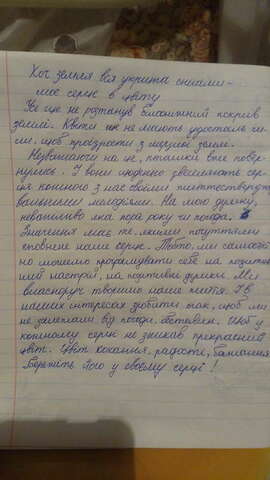 Хоч земля вся укрита снігами –
моє серце в цвіту
Ще не розтанув білосніжний покрив
землі. Квіти ще не мають удосталь си-
ли, щоб прозрости з надр землі.
Незважаючи на це, пташки вже повер-
нулись. І вони щоденно звеселяють сер-
ця кожного з нас своїми
мелодіями. На мою думку,
неважливо яка пора року чи погода.
Значення має те, якими почуттями
сповнене наше серце. Тобто, ми самостій-
но можемо програмувати себе на позитив-
ний настрій, на позитивні думки. Ми
власноруч творимо наше життя. І в
наших інтересах зробити так, щоб ми
не залежали від погоди, обставин. Щоб у
кожному серці не зникав прекрасний
цвіт. Цвіт кохання, радості, бажання.
Бережіть його у своєму серці!